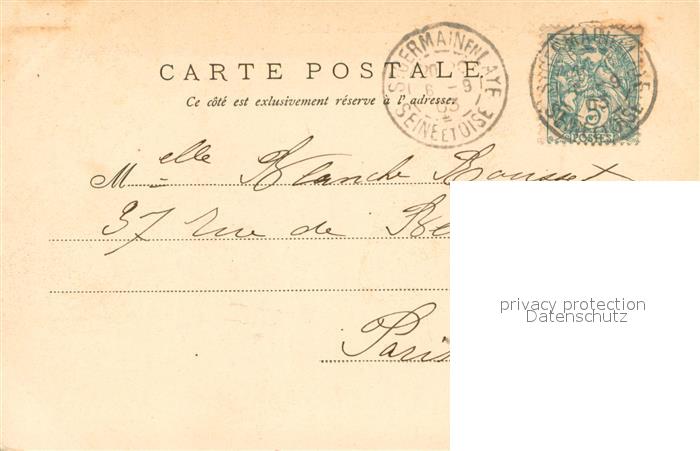 CARTE POSTALE.
Ce côté est exlusivement réserve à l'adresse.
ST GERMAIN EN LAYE
6 - 9
03
SEINE ET OISE
Melle Blanche Rousset
37 rue de
Paris
privacy protection
Datenschutz